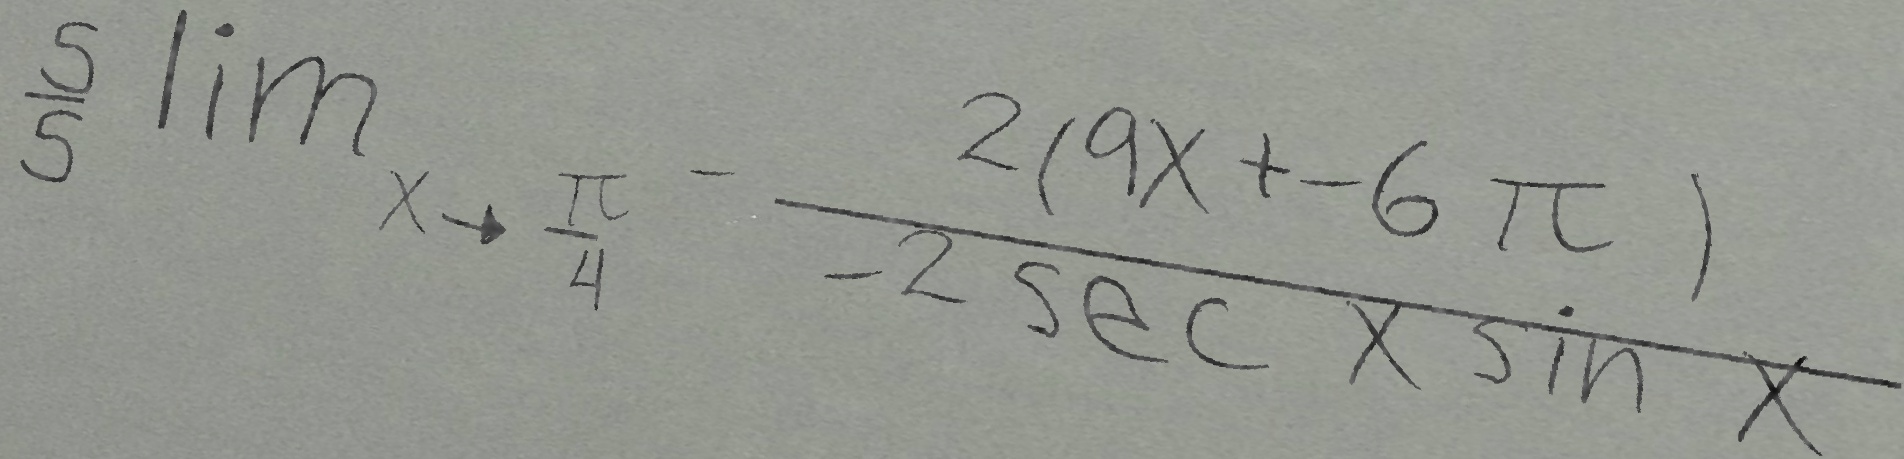 \frac{5}{5} \lim_{x \to \frac{\pi}{4}^-} \frac{2(9x + -6\pi)}{-2 \sec x \sin x}